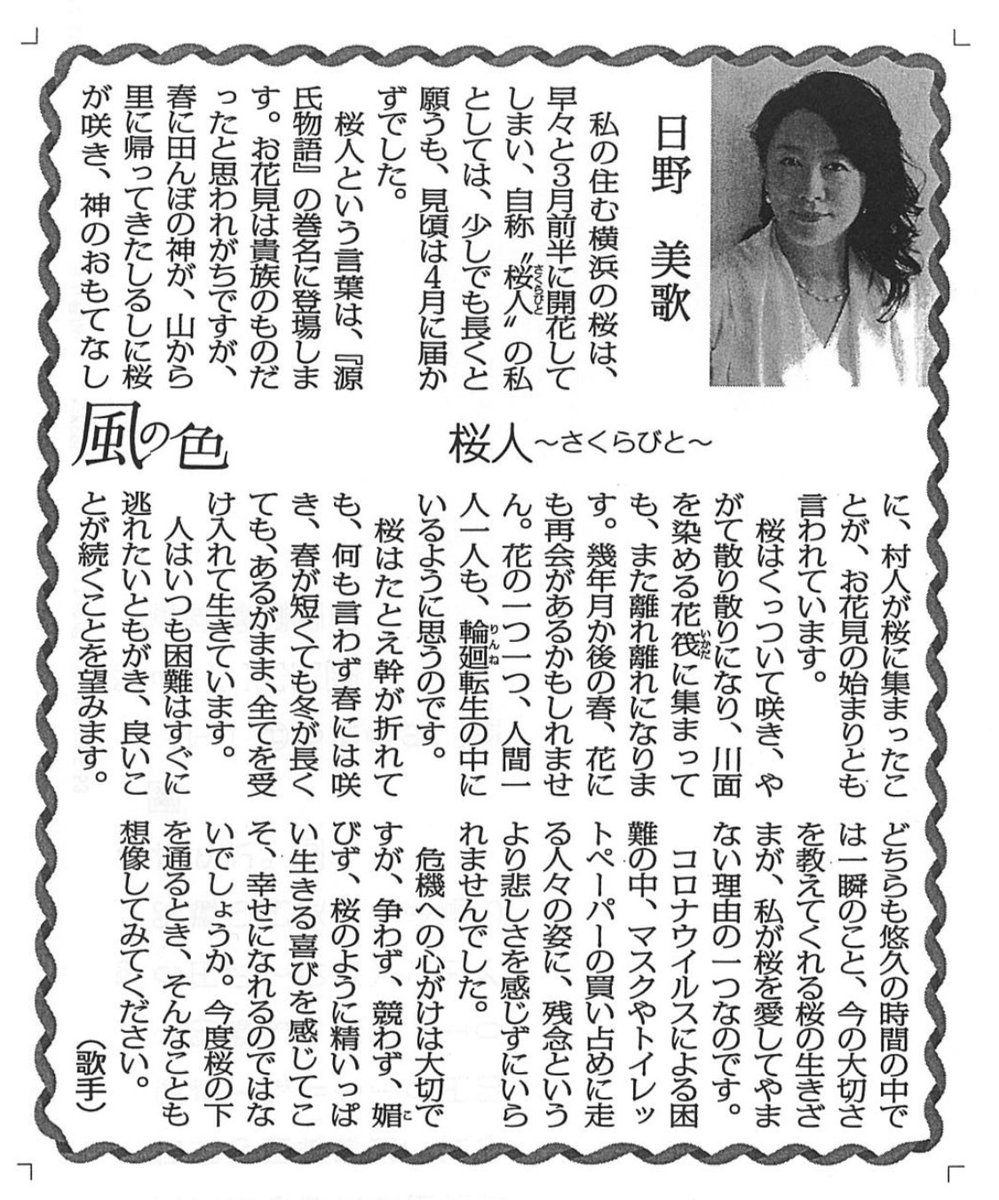 日野　美歌
　私の住む横浜の桜は、
早々と3月前半に開花して
しまい、自称〝桜人〟の私
さくらびと
としては、少しでも長くと
願うも、見頃は4月に届か
ずでした。
　桜人という言葉は、『源
氏物語』の巻名に登場しま
す。お花見は貴族のものだ
ったと思われがちですが、
春に田んぼの神が、山から
里に帰ってきたしるしに桜
が咲き、神のおもてなし
桜人～さくらびと～
風の色
に、村人が桜に集まったこ
とが、お花見の始まりとも
言われています。
　桜はくっついて咲き、や
がて散り散りになり、川面
を染める花筏に集まって
いかだ
も、また離れ離れになりま
す。幾年月か後の春、花に
も再会があるかもしれませ
ん。花の一つ一つ、人間一
人一人も、輪廻転生の中に
りんね
いるように思うのです。
　桜はたとえ幹が折れて
も、何も言わず春には咲
き、春が短くても冬が長く
ても、あるがまま、全てを受
け入れて生きています。
　人はいつも困難はすぐに
逃れたいともがき、良いこ
とが続くことを望みます。
どちらも悠久の時間の中で
は一瞬のこと、今の大切さ
を教えてくれる桜の生きざ
まが、私が桜を愛してやま
ない理由の一つなのです。
　コロナウイルスによる困
難の中、マスクやトイレッ
トペーパーの買い占めに走
る人々の姿に、残念という
より悲しさを感じずにいら
れませんでした。
　危機への心がけは大切で
すが、争わず、競わず、媚
こ
びず、桜のように精いっぱ
い生きる喜びを感じてこ
そ、幸せになれるのではな
いでしょうか。今度桜の下
を通るとき、そんなことも
想像してみてください。
（歌手）